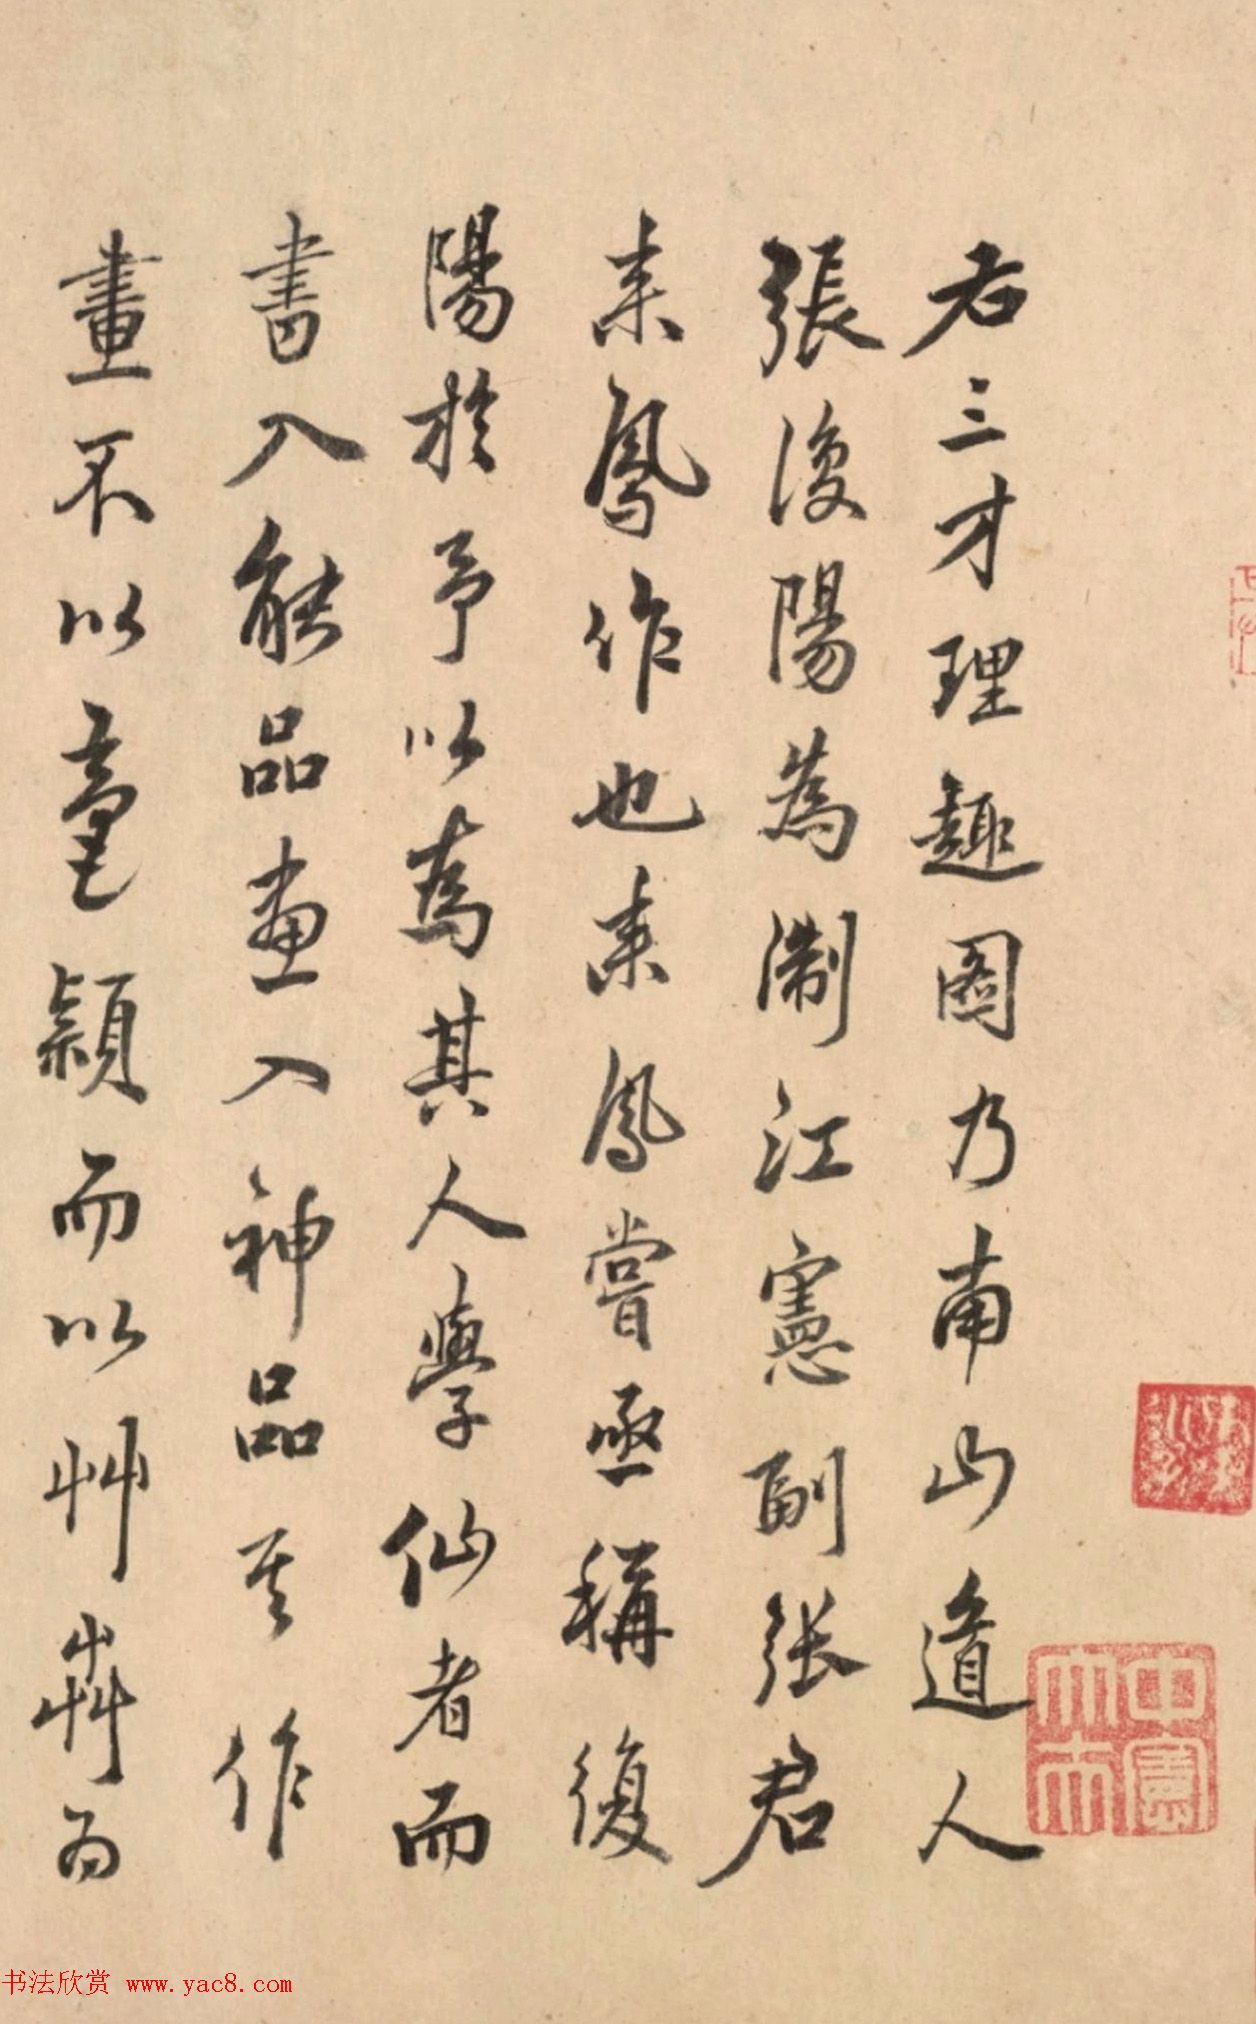 右三才理趣圖乃南山道人
張復陽為淛江憲副張君
来鳳作也来鳳嘗亟稱復
陽於予以為其人學仙者而
書入能品畫入神品其作
畫不以毫穎而以艸芔为
中憲大夫
书法欣赏 www.yac8.com